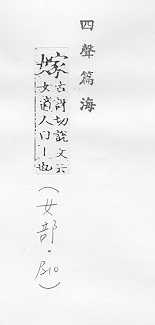 四聲篇海
嫁
古訝切說文云
女適人曰丨也
(女部·